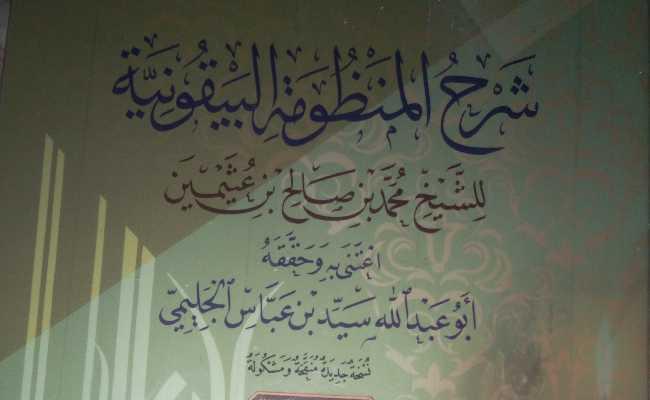 شَرْحُ المَنْظُومَةِ البَيْقُونِيَّةِ
لِلشَّيْخِ مُحَمَّد بْنِ صَالِحِ بْنِ عُثَيْمِين
اعْتَنَى بِهِ وَحَقَّقَهُ
أَبُو عَبْدِ اللهِ سَيِّد بْنُ عَبَّاسِ الْجَلِيمِيّ
نُسْخَةٌ جَدِيدَةٌ مُنَقَّحَةٌ وَمَشْكُولَةٌ